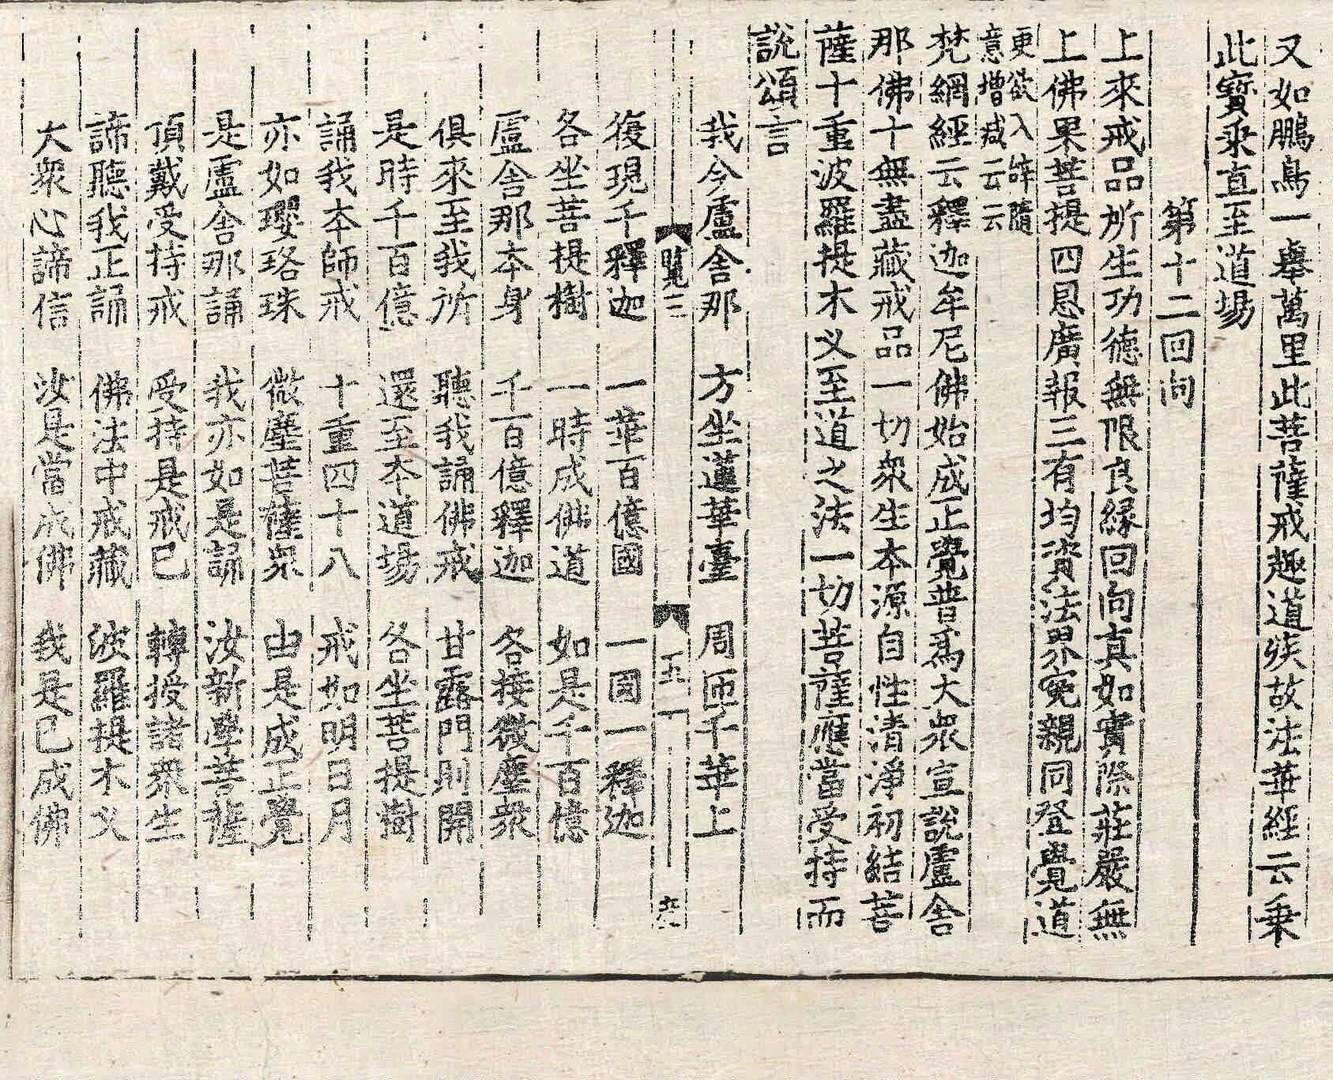 又如鵬鳥一舉萬里此菩薩戒趣道疾故法華經云乗
此寳乗直至道場
第十二回向
上來戒品所生功德無限良緣回向真如實際莊嚴無
上佛果菩提四恩廣報三有均資法界寃親同登覺道
更欲入辭隨
意增减云云
梵網經云釋迦牟尼佛始成正覺普爲大衆宣說盧舍
那佛十無盡藏戒品一切衆生本源自性清淨初結菩
薩十重波羅提木义至道之法一切菩薩應當受持而
說頌言
我今盧舍那 方坐蓮華臺 周匝千華上
覽三 五
復現千釋迦 一華百億國 一國一釋迦
各坐菩提樹 一時成佛道 如是千百億
盧舍那本身 千百億釋迦 各接微塵衆
俱來至我所 聽我誦佛戒 甘露門則開
是時千百億 還至本道場 各坐菩提樹
誦我本師戒 十重四十八 戒如明日月
亦如瓔珞珠 微塵菩薩衆 由是成正覺
是盧舍那誦 我亦如是誦 汝新學菩薩
頂戴受持戒 受持是戒已 轉授諸衆生
諦聽我正誦 佛法中戒藏 波羅提木义
大衆心諦信 汝是當成佛 我是已成佛